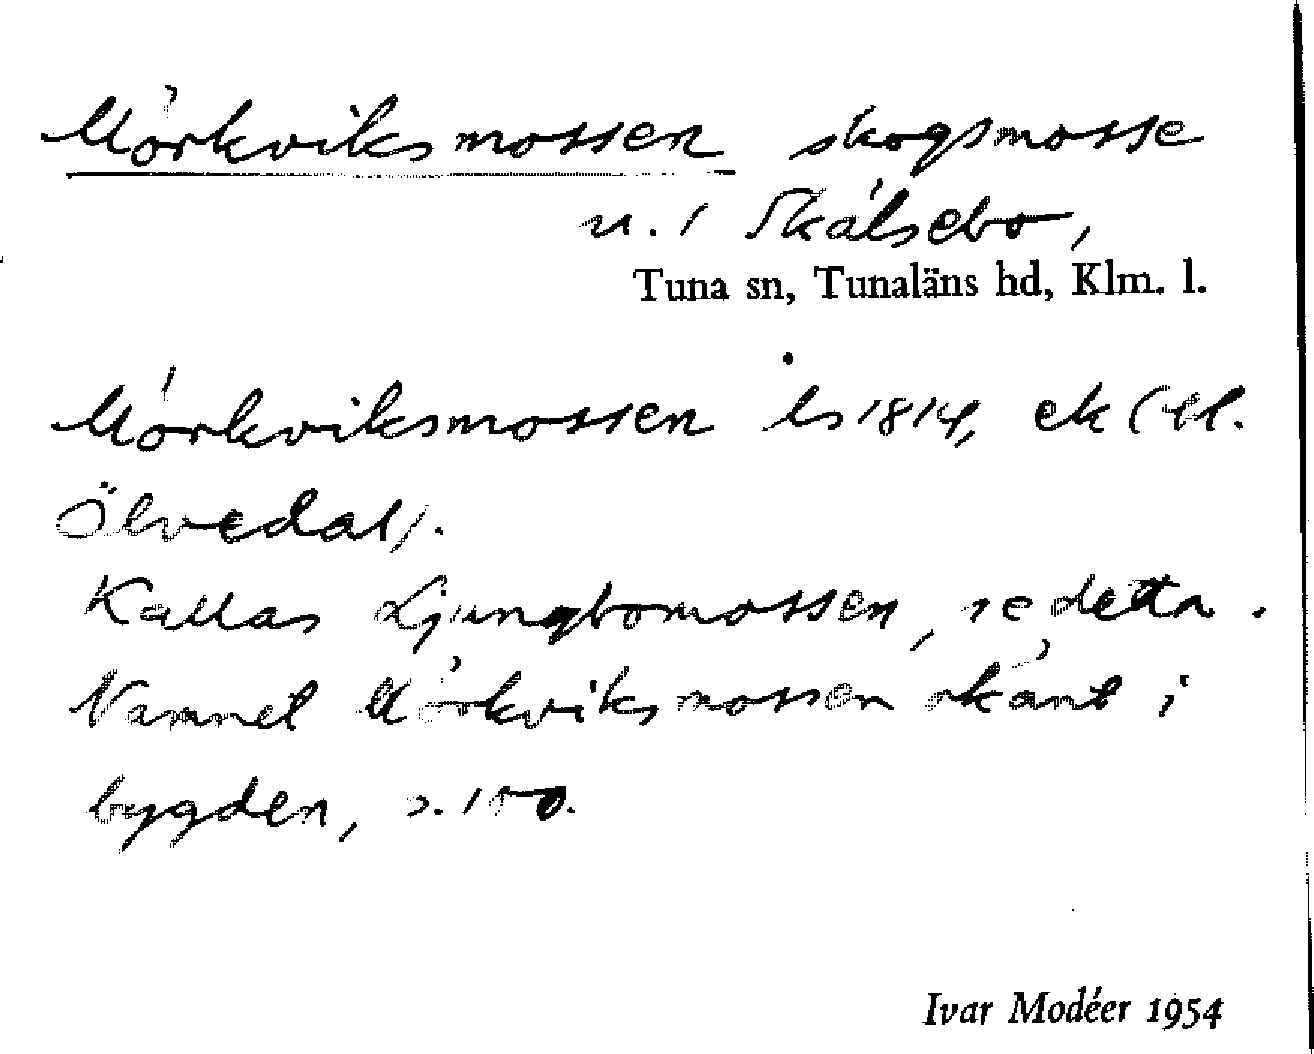 Mörkviksmossen skogsmosse
n. i Skälsebo,
Tuna sn, Tunaläns hd, Klm. l.
Mörkviksmossen ls 1814, ek (H.
Ölvedal).
Kallas Ljungbomossen, se detta.
Namnet Mörkviksmossen okänt i
bygden, s. 150.
Ivar Modéer 1954